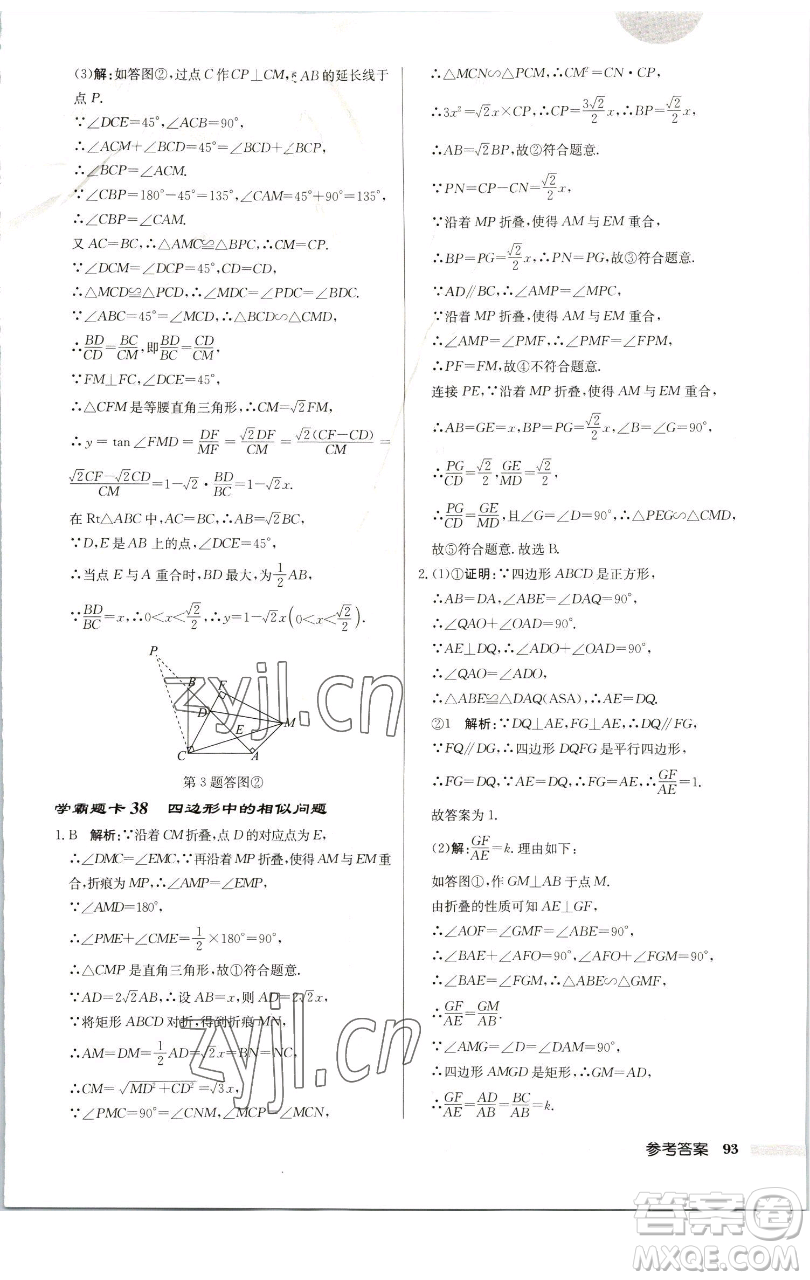 (3)解:如答图②,过点C作CP⊥CM,交AB的延长线于
点P.
∵∠DCE=45°,∠ACB=90°,
∴∠ACM+∠BCD=45°=∠BCD+∠BCP,
∴∠BCP=∠ACM.
∵∠CBP=180°-45°=135°,∠CAM=45°+90°=135°,
∴∠CBP=∠CAM.
又AC=BC,∴△AMC≌△BPC,∴CM=CP.
∵∠DCM=∠DCP=45°,CD=CD,
∴△MCD≌△PCD,∴∠MDC=∠PDC=∠BDC.
∵∠ABC=45°=∠MCD,∴△BCD∽△CMD,
∴BD/CD=BC/CM,即BD/BC=CD/CM.
∵FM⊥FC,∠DCM=45°,
∴△CFM是等腰直角三角形,∴CM=√2FM,
∴y=tan∠FMD=DF/MF=√2DF/CM=√2(CF-CD)/CM=
(√2CF-√2CD)/CM=1-√2·BD/BC=1-√2x.
在Rt△ABC中,AC=BC,∴AB=√2BC,
∵D,E是AB上的点,∠DCE=45°,
∴当点E与A重合时,BD最大,为1/2AB,
∵BD/BC=x,∴0<x<√2/2,∴y=1-√2x(0<x<√2/2).
P
B
F
D
M
E
C
A
第3题答图②
学霸题卡38 四边形中的相似问题
1. B 解析:∵沿着CM折叠,点D的对应点为E,
∴∠DMC=∠EMC,∵再沿着MP折叠,使得AM与EM重
合,折痕为MP,∴∠AMP=∠EMP,
∵∠AMD=180°,
∴∠PME+∠CME=1/2×180°=90°,
∴△CMP是直角三角形,故①符合题意.
∵AD=2√2AB,∴设AB=x,则AD=2√2x,
∵将矩形ABCD对折,得到折痕MN,
∴AM=DM=1/2AD=√2x=BN=NC,
∴CM=√(MD²+CD²)=√3x.
∵∠PMC=90°=∠CNM,∠MCP=∠MCN,
∴△MCN∽△PCM,∴CM²=CN·CP,
∴3x²=√2x×CP,∴CP=3√2/2x,∴BP=√2/2x,
∴AB=√2BP,故②符合题意.
∵PN=CP-CN=√2/2x,
∵沿着MP折叠,使得AM与EM重合,
∴BP=PG=√2/2x,∴PN=PG,故③符合题意.
∵AD∥BC,∴∠AMP=∠MPC,
∵沿着MP折叠,使得AM与EM重合,
∴∠AMP=∠PMF,∴∠PMF=∠FPM,
∴PF=FM,故④不符合题意.
连接PE,∵沿着MP折叠,使得AM与EM重合,
∴AB=GE=x,BP=PG=√2/2x,∠B=∠G=90°,
∴PG/CD=√2/2,GE/MD=√2/2,
∴PG/CD=GE/MD,且∠G=∠D=90°,∴△PEG∽△CMD,
故⑤符合题意.故选B.
2. (1)①证明:∵四边形ABCD是正方形,
∴AB=DA,∠ABE=∠DAQ=90°,
∴∠QAO+∠OAD=90°.
∵AE⊥DQ,∴∠ADO+∠OAD=90°,
∴∠QAO=∠ADO,
∴△ABE≌△DAQ(ASA),∴AE=DQ.
②1 解析:∵DQ⊥AE,FG⊥AE,∴DQ∥FG,
∵FQ∥DG,∴四边形DQFG是平行四边形,
∴FG=DQ,∵AE=DQ,∴FG=AE,∴GF/AE=1.
故答案为1.
(2)解:GF/AE=k.理由如下:
如答图①,作GM⊥AB于点M.
由折叠的性质可知AE⊥GF,
∴∠AOF=∠GMF=∠ABE=90°,
∴∠BAE+∠AFO=90°,∠AFO+∠FGM=90°,
∴∠BAE=∠FGM,∴△ABE∽△GMF,
∴GF/AE=GM/AB.
∵∠AMG=∠D=∠DAM=90°,
∴四边形AMGD是矩形,∴GM=AD,
∴GF/AE=AD/AB=BC/AB=k.
参考答案 93
zyjl.cn
zyjl.cn
答案圈
MXQE.COM